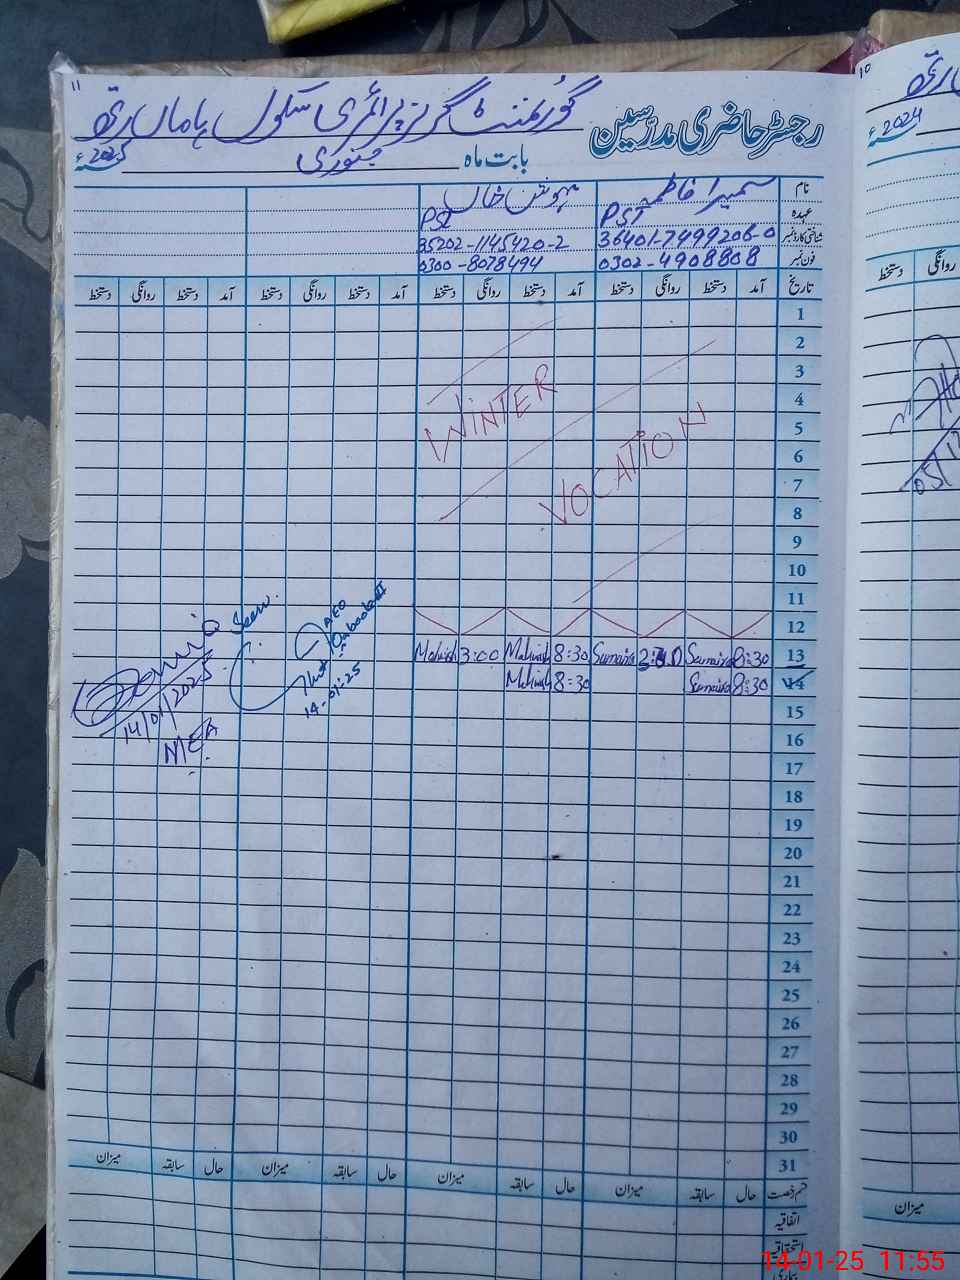 ۱۱
گورنمنٹ گرلز پرائمری سکول
رجسٹر حاضری مدرسین
بابت ماہ جنوری 2025ء
نام سمیرا فاطمہ مہوش خان
عہدہ PST PST
شناختی کارڈ نمبر 36401-7499206-0 35202-1145420-2
فون نمبر 0302-4908808 0300-8078494
تاریخ آمد دستخط روانگی دستخط آمد دستخط روانگی دستخط آمد دستخط روانگی دستخط آمد دستخط روانگی دستخط
1
2
3
4
5
6
7
8
9
10
11
12
WINTER
VOCATION
13 8:30 Sumaira Sumaira 8:30 Mahwish 3:00 Mahwish
14 8:30 Sumaira 8:30 Mahwish
15
16
17
18
19
20
21
22
23
24
25
26
27
28
29
30
31
Seen.
AEO
14-01-25
14/01/2025
MEA
حال سابقہ میزان حال سابقہ میزان حال سابقہ میزان حال سابقہ میزان
قسم رخصت
اتفاقیہ
استحقاقیہ
بیماری
۱۰
2024ء
روانگی دستخط
میزان
14-01-25 11:55